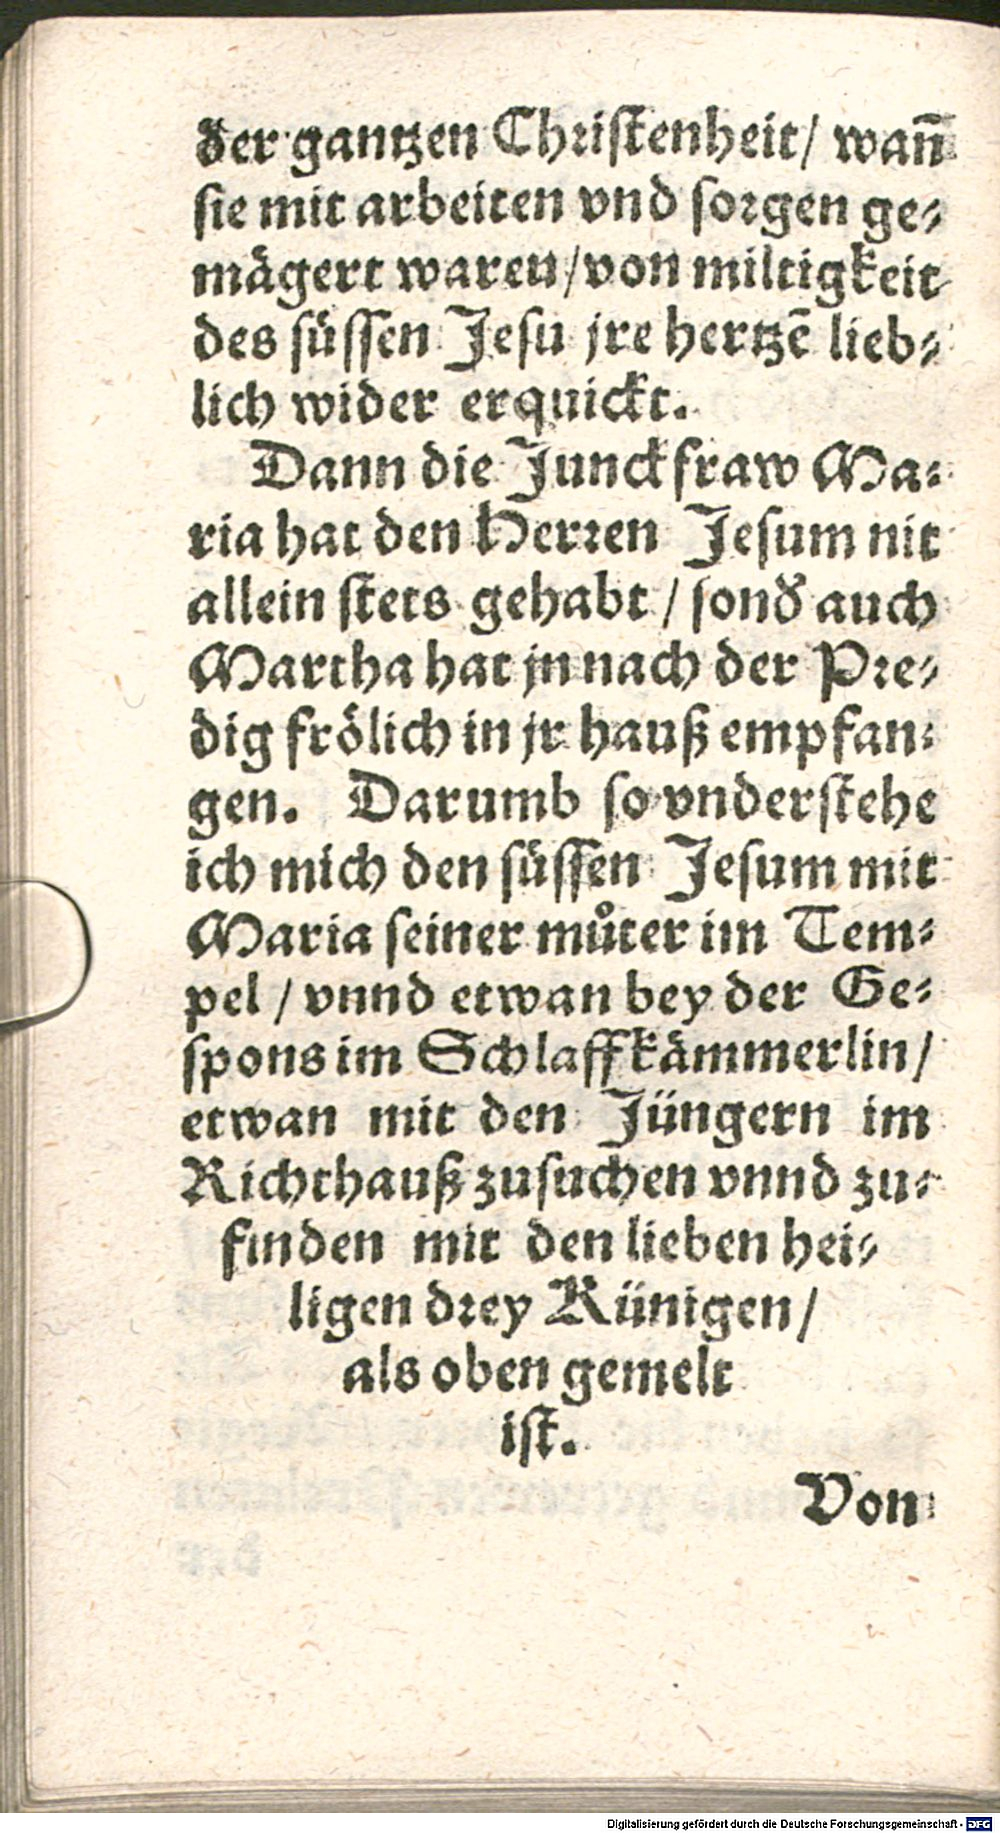 der gantzen Chriſtenheit/ wañ
ſie mit arbeiten vnd ſorgen ge⸗
mägert waren/von miltigkeit
des ſüſſen Jeſu jre hertzẽ lieb⸗
lich wider erquickt.
Dann die Junckfraw Ma⸗
ria hat den Herren Jeſum nit
allein ſtets gehabt / ſonď auch
Martha hat jn nach der Pre⸗
dig frölich in jr hauß empfan⸗
gen. Darumb ſo vnderſtehe
ich mich den ſüſſen Jeſum mit
Maria ſeiner můter im Tem⸗
pel / vnnd etwan bey der Ge⸗
ſpons im Schlaffkämmerlin/
etwan mit den Jüngern im
Richthauß zuſuchen vnnd zu⸗
finden mit den lieben hei⸗
ligen drey Künigen/
als oben gemelt
iſt.
Von
Digitalisierung gefördert durch die Deutsche Forschungsgemeinschaft - DFG